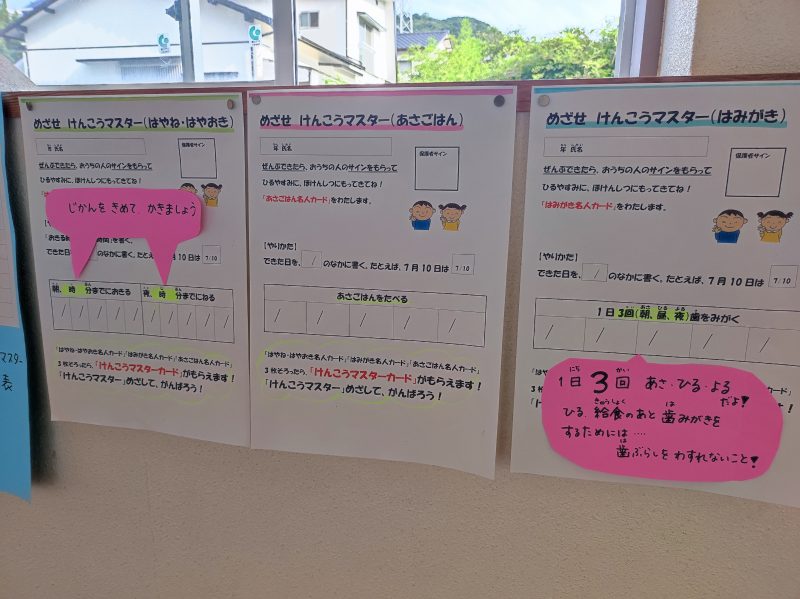 めざせ けんこうマスター(はやね・はやおき)
年 氏名
保護者サイン
ぜんぶできたら、おうちの人のサインをもらって
ひるやすみに、ほけんしつにもってきてね!
じかんを きめて、かきましょう
できた日を、
のなかに書く。たとえば、7月10日は
7/10
朝、 時 分までにおきる
夜、 時 分までにねる
/ / / / / / / / / /
「はやね・はやおき名人カード」「はみがき名人カード」「あさごはん名人カード」
3枚そろったら、「けんこうマスターカード」がもらえます!
「けんこうマスター」めざして、がんばろう!
めざせ けんこうマスター(あさごはん)
年 氏名
保護者サイン
ぜんぶできたら、おうちの人のサインをもらって
ひるやすみに、ほけんしつにもってきてね!
「あさごはん名人カード」をわたします。
【やりかた】
できた日を、 / のなかに書く。たとえば、7月10日は 7/10
あさごはんをたべる
/ / / / /
「はやね・はやおき名人カード」「はみがき名人カード」「あさごはん名人カード」
3枚そろったら、「けんこうマスターカード」がもらえます!
「けんこうマスター」めざして、がんばろう!
めざせ けんこうマスター(はみがき)
年 氏名
保護者サイン
ぜんぶできたら、おうちの人のサインをもらって
ひるやすみに、ほけんしつにもってきてね!
「はみがき名人カード」をわたします。
【やりかた】
できた日を、 / のなかに書く。たとえば、7月10日は 7/10
1日3回(朝、昼、夜)歯をみがく
/ / / / /
1日 3回 あさ・ひる・よる
だよ!
ひる、給食のあと 歯みがきを
するためには‥‥
歯ぶらしを わすれないこと!
マスター
表